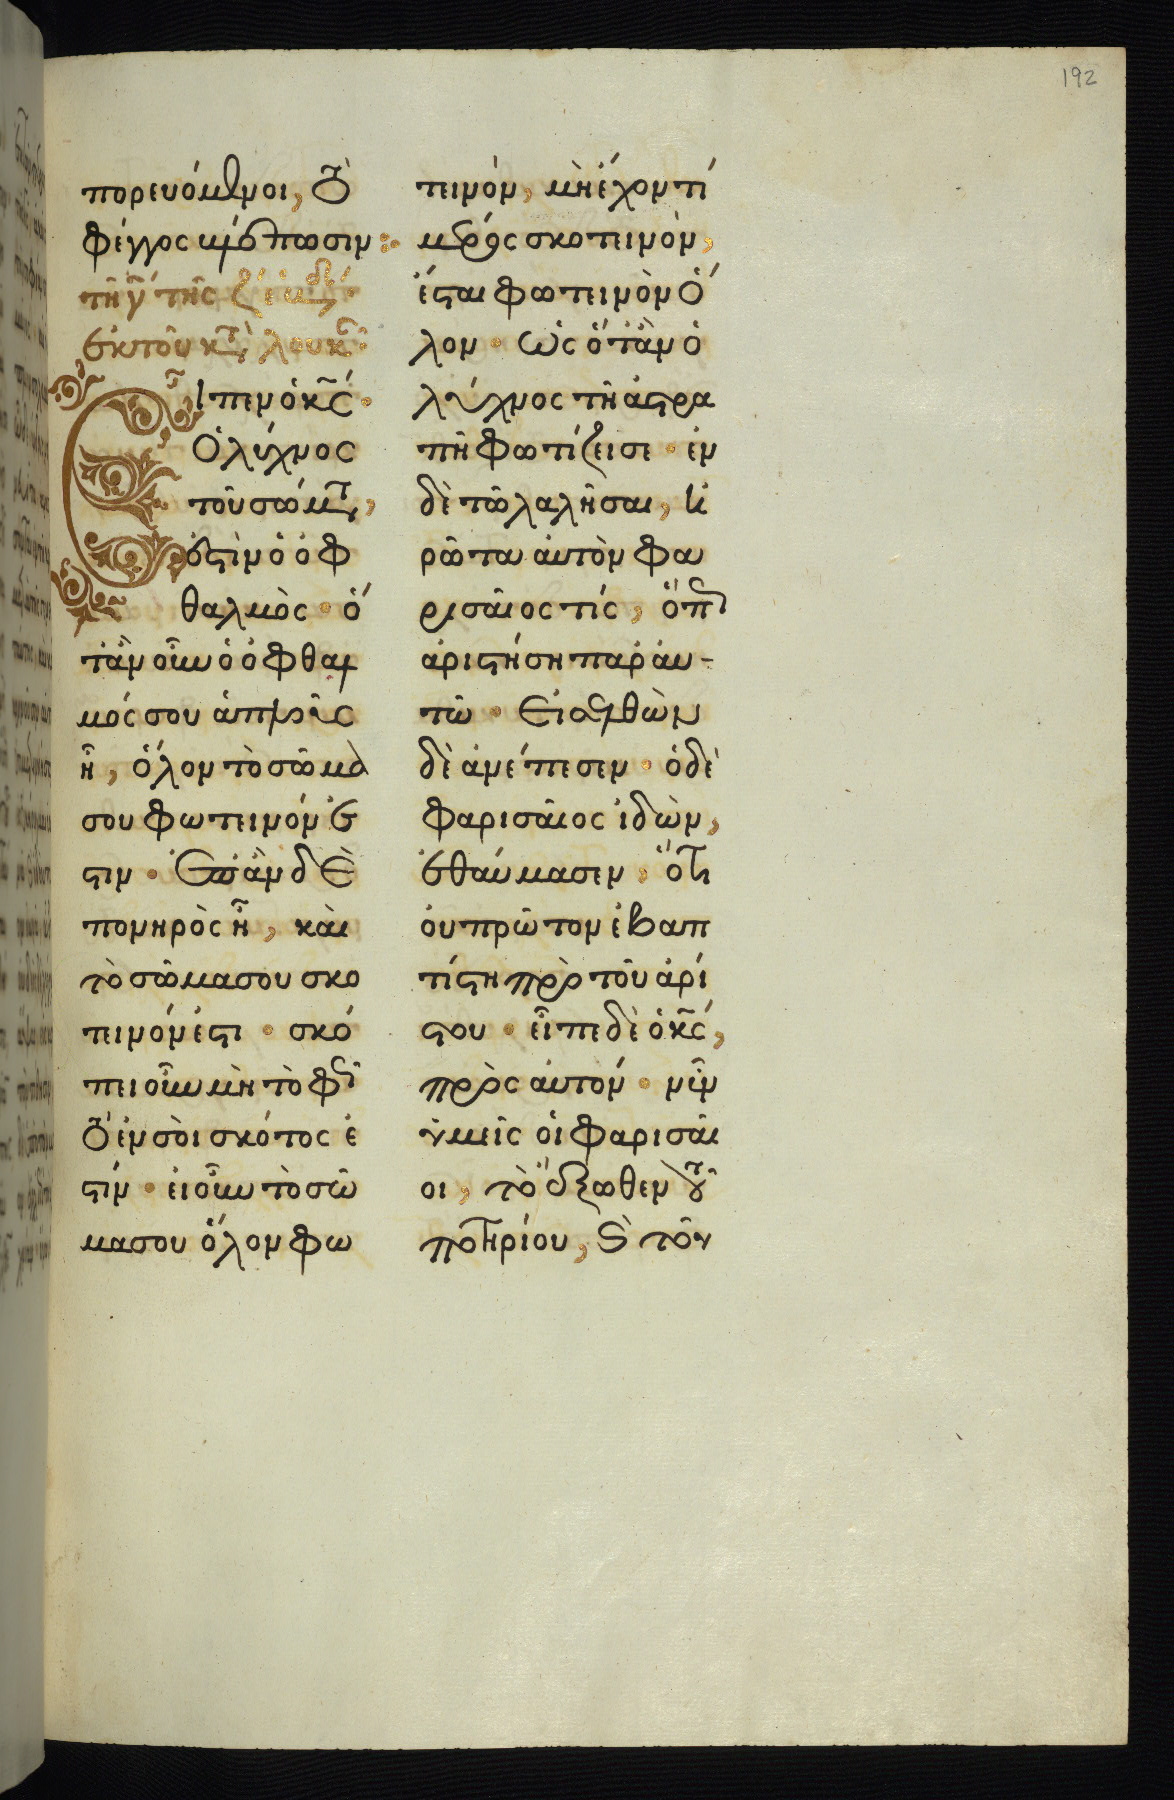 192
πορευόμενοι, τὸ
φέγγος βλέπωσιν
τῆ γ τῆς ζ ἑβδ
ἐκ τοῦ κτ λουκ
Εἶπεν ὁ κς
Ὁ λύχνος
τοῦ σώματ,
ἐστὶν ὁ ὀφ
θαλμὸς · ὅ
τἂν οὖν ὁ ὀφθαλ
μός σου ἁπλοῦς
ἦ, ὅλον τὸ σῶμὰ
σου φωτεινόν ἐ
στιν · Ἐπἂν δὲ
πονηρὸς ἦ, καὶ
τὸ σῶμα σου σκο
τινόν ἐστι · σκό
πει οὖν μὴ τὸ φῶς
τὸ ἐν σοὶ σκότος ἐ
στίν · εἰ οὖν τὸ σῶ
μα σου ὅλον φω
τινόν, μὴ ἔχον τί
μέρος σκοτινὸν,
ἔσται φωτεινὸν ὅ
λον · ὡς ὅτἂν ὁ
λύχνος τῆ ἀστρα
πῆ φωτίζει σε · ἐν
δὲ τῶ λαλῆσαι, ἠ
ρῶτα αὐτὸν φα
ρισαῖος τίς, ὅπως
ἀριστήση παρ' αυ-
τῶ · Εἰσελθὼν
δὲ ἀνέπεσεν · ὁ δὲ
φαρισαῖος ἰδὼν,
ἐθαύμασεν, ὅτι
οὐ πρῶτον ἐβαπ
τίστη πρὸ τοῦ ἀρί
στου · εἶπε δὲ ὁ κς,
πρὸς αὐτόν · νῦν
ὑμεῖς οἱ φαρισαῖ
οι, τὸ ἔξωθεν τοῦ
ποτηρίου, καὶ τοῦ